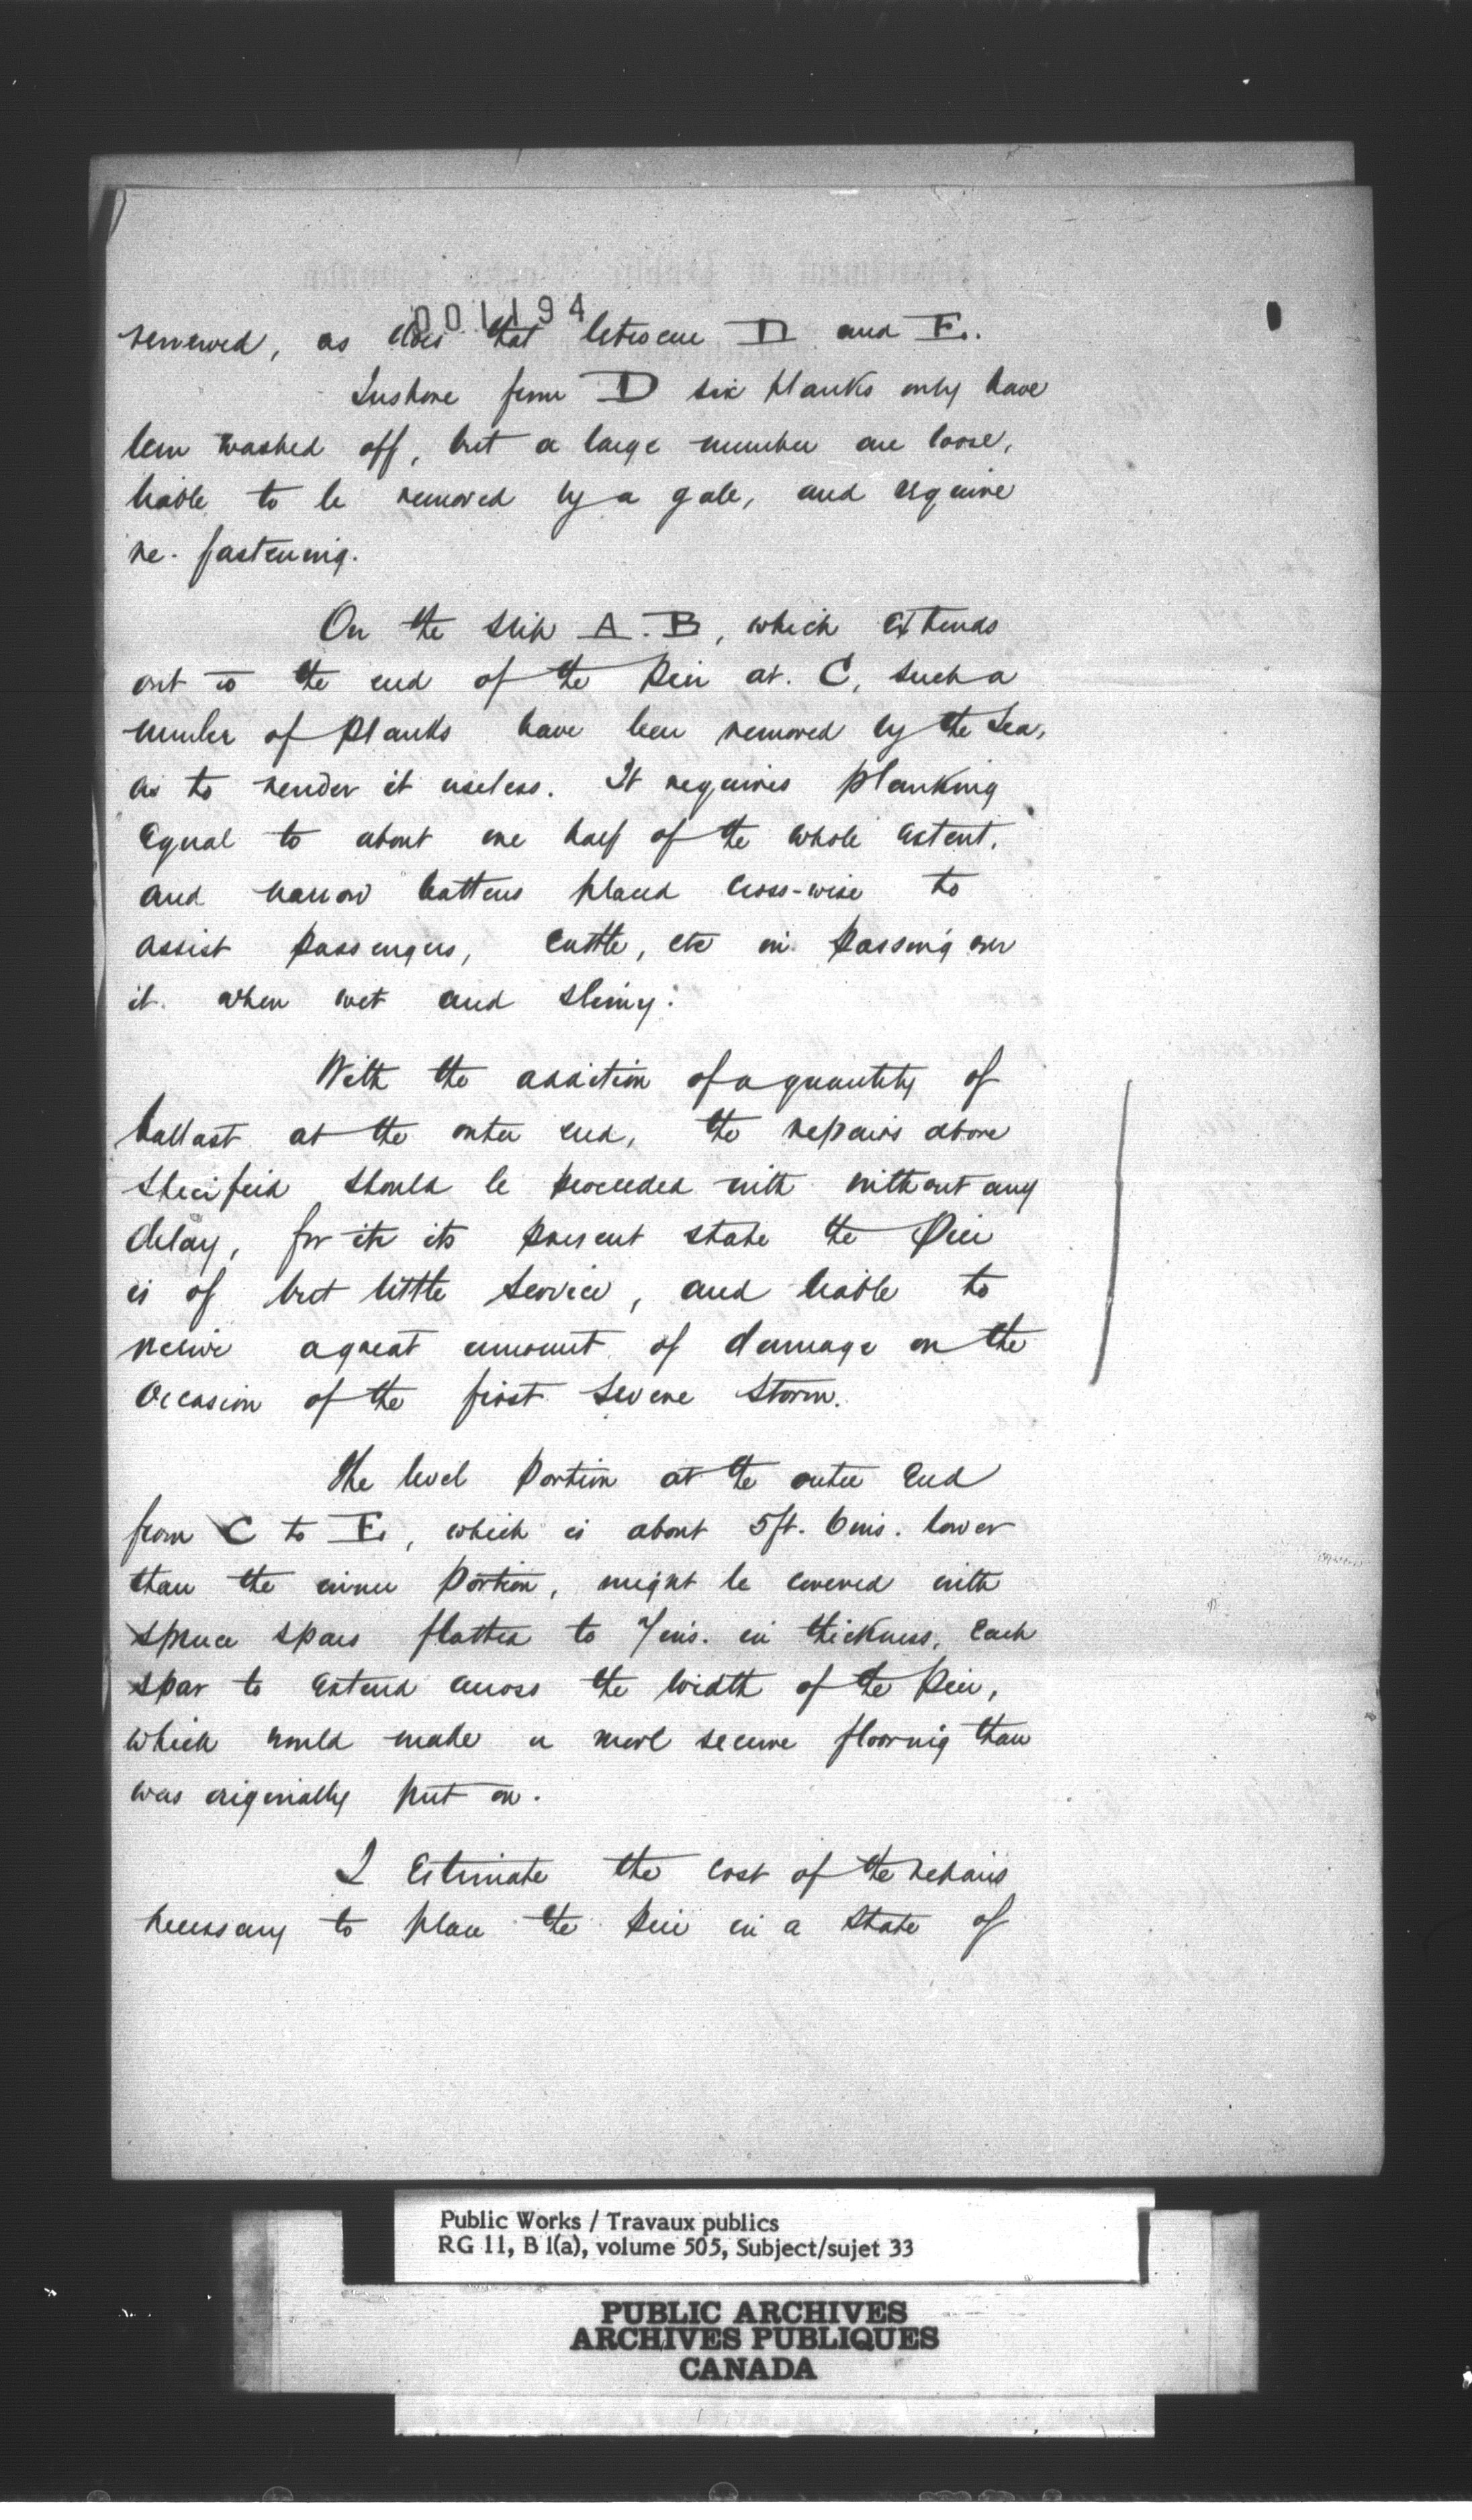 001194
renewed, as does that between D and E.
Inshore from D six planks only have
been washed off, but a large number are loose,
liable to be removed by a gale, and require
re-fastening.
On the slip A.B, which extends
out to the end of the Pier at C, such a
number of planks have been removed by the Sea,
as to render it useless. It requires planking
equal to about one half of the whole extent,
and narrow battens placed cross-wise to
assist passengers, cattle, etc in passing over
it when wet and slimy.
With the addition of a quantity of
ballast at the outer end, the repairs above
specified should be proceeded with without any
delay, for in its present state the Pier
is of but little service, and liable to
receive a great amount of damage on the
occasion of the first severe storm.
The level portion at the outer end
from C to E, which is about 5ft. 6ins. lower
than the inner portion, might be covered with
spruce spars flatted to 7ins. in thickness, each
spar to extend across the width of the Pier,
which would make a more secure flooring than
was originally put on.
I Estimate the cost of the repairs
necessary to place the Pier in a state of
Public Works / Travaux publics
RG 11, B 1(a), volume 505, Subject/sujet 33
PUBLIC ARCHIVES
ARCHIVES PUBLIQUES
CANADA